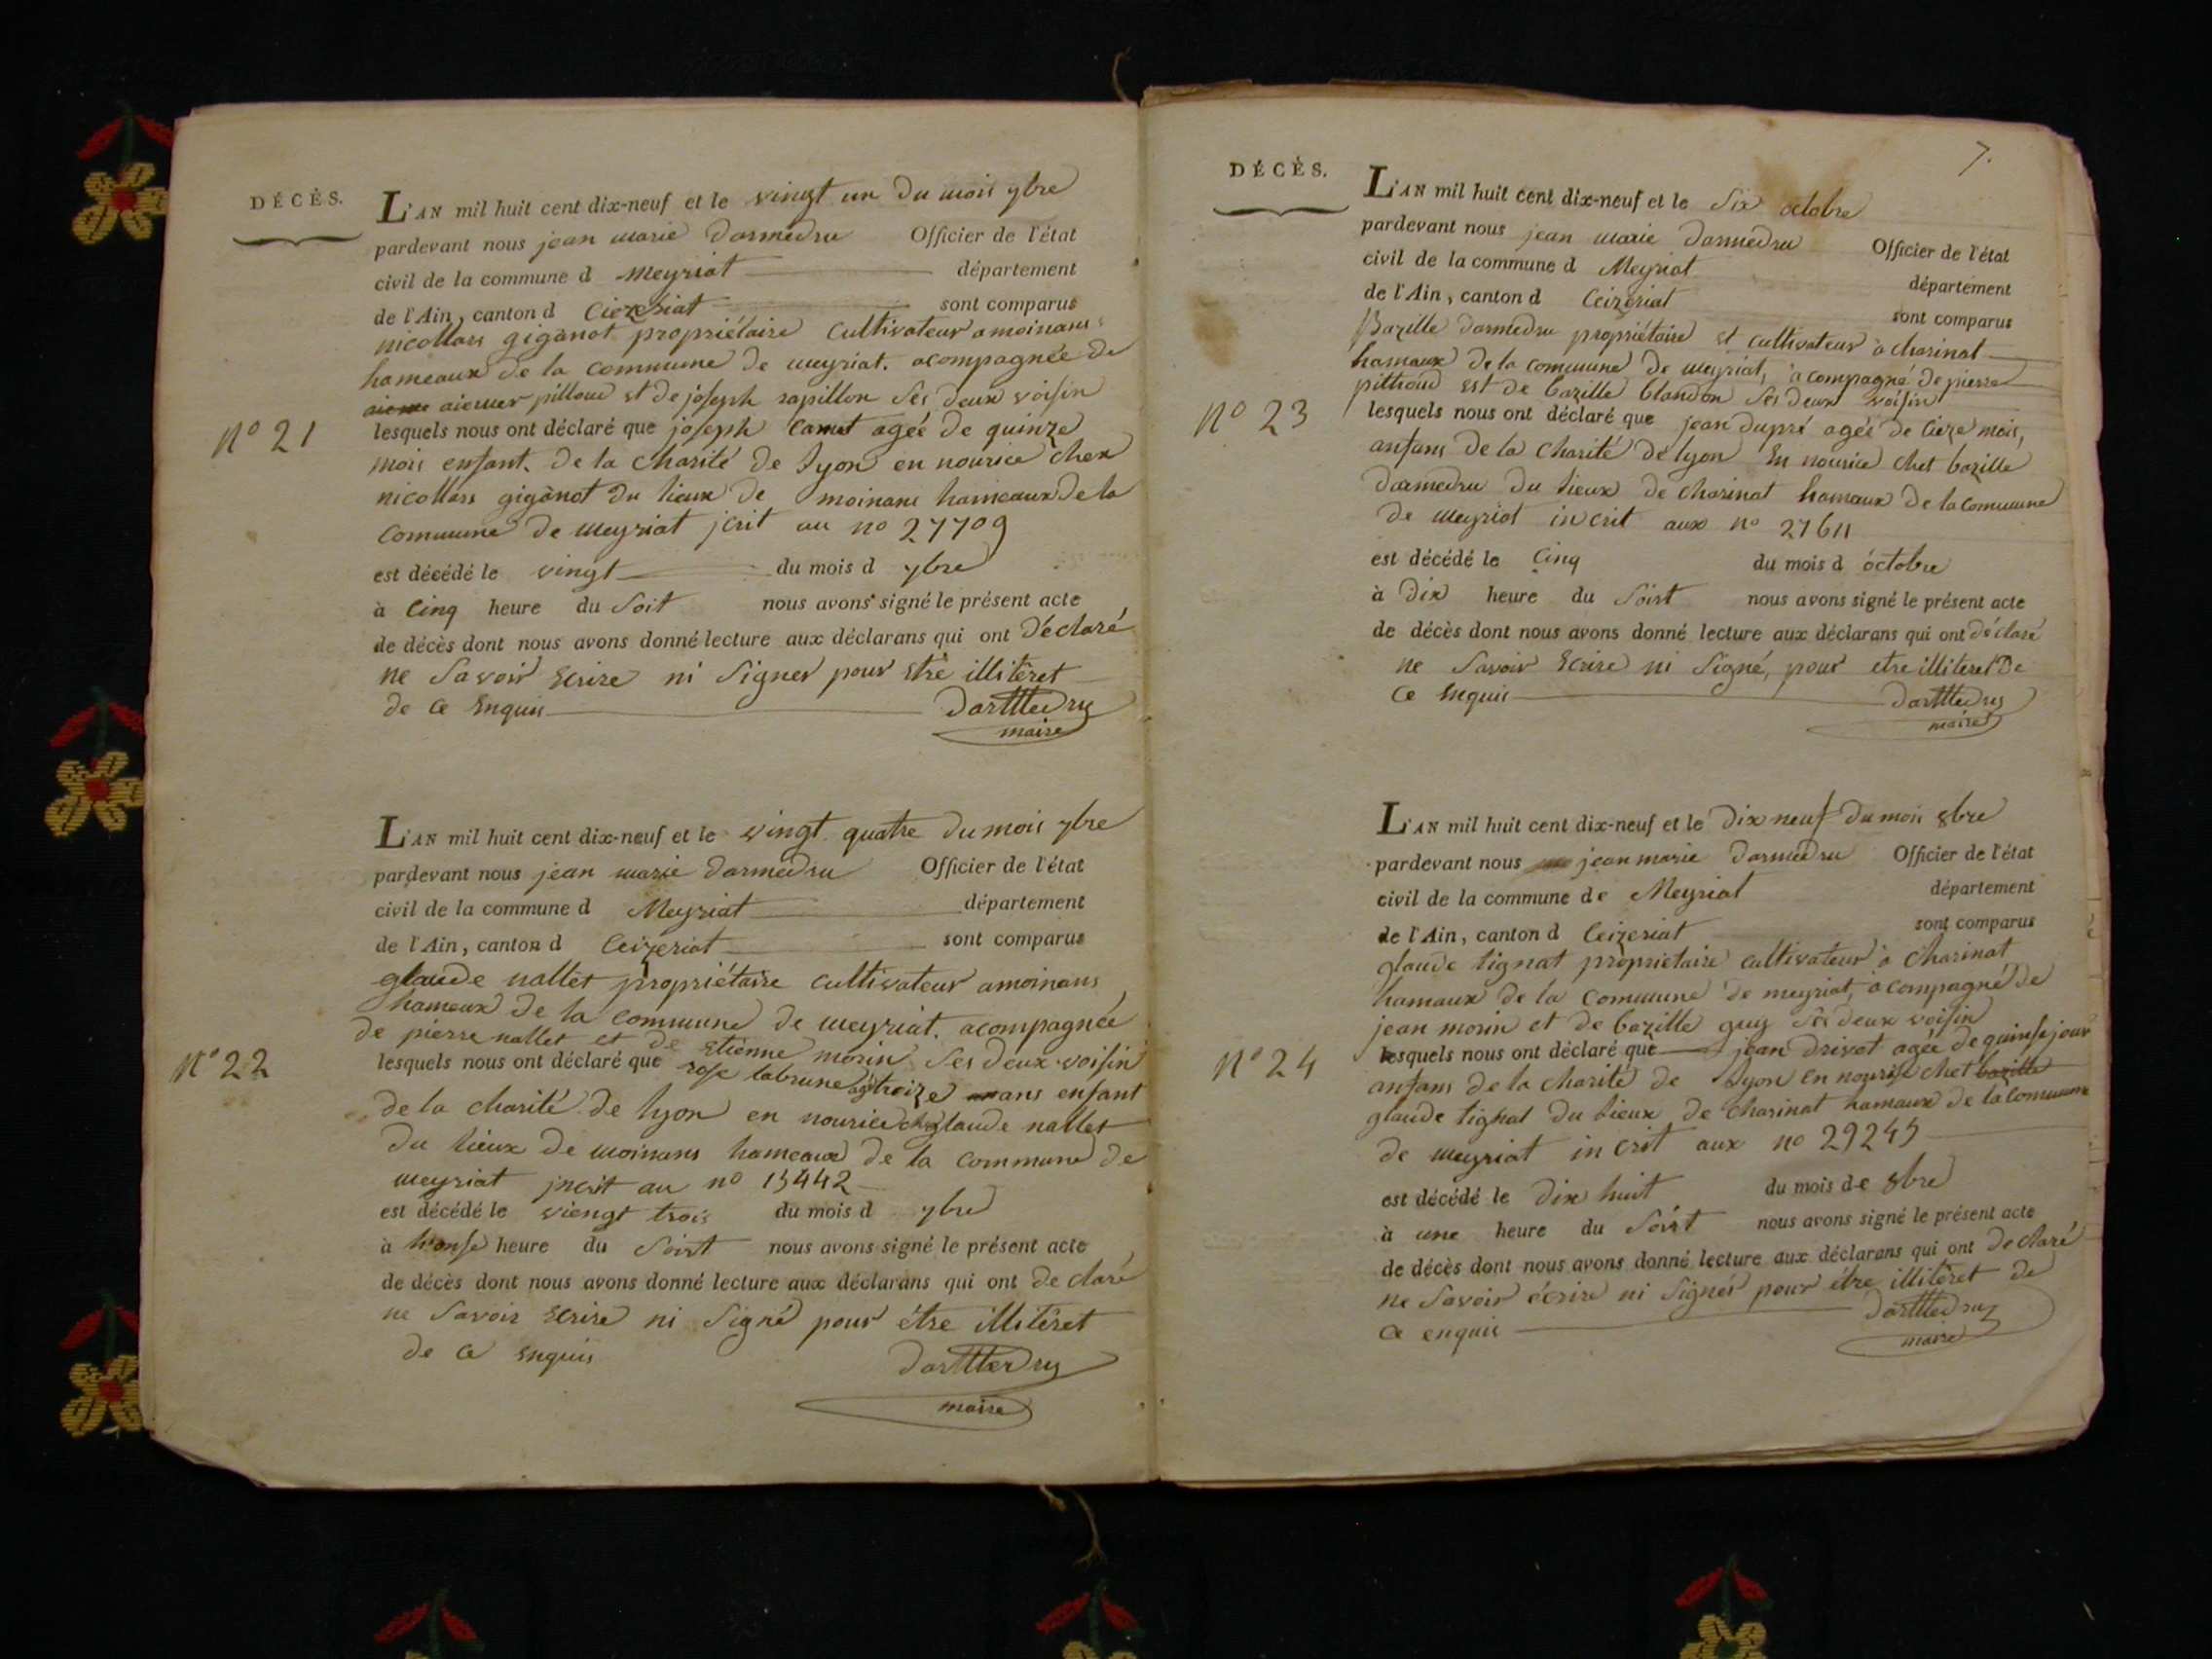 DÉCÈS.
L'AN mil huit cent dix-neuf et le vingt un du mois 7bre
pardevant nous jean marie darmedru Officier de l'état
civil de la commune d Meyriat département
de l'Ain, canton d Ciezeriat sont comparus
nicollas giganot propriétaire cultivateur amoinans
hameaux de la commune de meyriat. acompagnée de
pilloud et de joseph rapillon ses deux voisin
N° 21
lesquels nous ont déclaré que joseph camet agée de quinze
mois enfant de la charité de lyon en nourice chex
nicollas giganot du lieux de moinans hameaux de la
commune de meyriat jcrit au no 27709
est décédé le vingt du mois d 7bre
à cinq heure du Soit nous avons signé le présent acte
de décès dont nous avons donné lecture aux déclarans qui ont déclaré
ne savoir Ecrire ni signer pour etre illitêret
de ce Enquis darmedru
maire
L'AN mil huit cent dix-neuf et le vingt quatre du mois 7bre
pardevant nous jean marie darmedru Officier de l'état
civil de la commune d Meyriat département
de l'Ain, canton d Ceizeriat sont comparus
glaude nallet propriétaire cultivateur amoinans
hameux de la commune de meyriat. acompagnée
de pierre nallet et de Etienne morin ses deux voisin
N° 22
lesquels nous ont déclaré que rose labrune agé troize ans enfant
de la charité de lyon en nourice ché glaude nallet
du lieux de moinans hameaux de la commune de
meyriat jncrit au no 13442
est décédé le viengt trois du mois d 7bre
à honse heure du Soirt nous avons signé le présent acte
de décès dont nous avons donné lecture aux déclarans qui ont declaré
ne savoir Ecrire ni signé pour être illitêret
de ce Enquis darmedru
maire
7.
DÉCÈS.
L'AN mil huit cent dix-neuf et le Six octobre
pardevant nous jean marie darmedru Officier de l'état
civil de la commune d Meyriat département
de l'Ain, canton d Ceizeriat sont comparus
Bazille darmedru propriétaire et cultivateur à charinat
hamaux de la commune de meyriat, acompagné de pierre
pillioud est de bazille blandon ses deux voisin
N° 23
lesquels nous ont déclaré que jean dupré agée de sieze mois,
anfans de la charité de lyon En nourice chet bazille
darmedru du lieux de charinat hamaux de la commune
de meyriat incrit aux no 27611
est décédé le cinq du mois d octobre
à dix heure du Soirt nous avons signé le présent acte
de décès dont nous avons donné lecture aux déclarans qui ont déclaré
ne savoir Ecrire ni signé, pour etre illiteret De
ce Enquis darmedru
maire
L'AN mil huit cent dix-neuf et le dix neuf du mois 8bre
pardevant nous jean marie darmedru Officier de l'état
civil de la commune de Meyriat département
de l'Ain, canton d Ceizeriat sont comparus
glaude tignat propriétaire cultivateur à charinat
hamaux de la commune de meyriat, acompagné de
jean morin et de bazille guy ses deux voisin
N° 24
lesquels nous ont déclaré que jean drivet agée de quinse jour
anfans de la charité de lyon en nourise chet bazille
glaude tignat du lieux de charinat hamaux de la commune
de meyriat incrit aux no 29245
est décédé le dix huit du mois de 8bre
à une heure du Soirt nous avons signé le présent acte
de décès dont nous avons donné lecture aux déclarans qui ont declaré
ne savoir écrire ni signér pour être illitêret de
ce enquis darmedru
maire